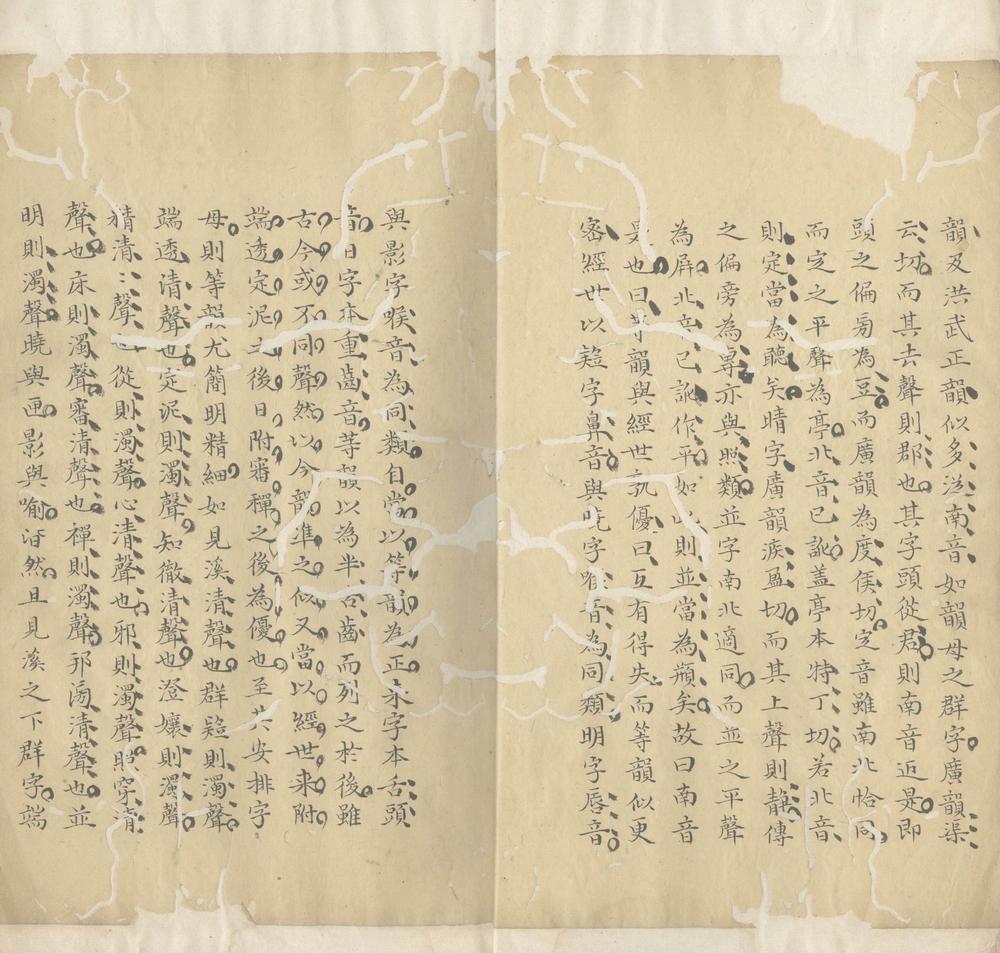 韻及洪武正韻似多泛南音如韻母之群字廣韻渠
云切而其去聲則郡也其字頭從君則南音近是即
頭之偏旁為豆而廣韻為度侯切定音雖南北恰同
而定之平聲為亭北音已訛蓋亭本特丁切若北音
則定當為聽矣晴字廣韻疾盈切而其上聲則靜傳
之偏旁為專亦與照類並字南北適同而並之平聲
為屏北音已訛作平如以則並當為蘋矣故曰南音
是也曰等韻與經世孰優曰互有得失而等韻似更
密經世以疑字鼻音與曉字喉音為同類明字唇音
與影字喉音為同類自當以等韻為正來字本舌頭
音日字本重齒音等韻以為半舌齒而列之於後雖
古今或不同聲然以今韻準之似又當以經世来附
端透定泥之後日附審禪之後為優也至其安排字
母則等韻尤簡明精細如見溪清聲也群疑則濁聲
端透清聲也定泥則濁聲知徹清聲也澄孃則濁聲
精清清聲也從則濁聲心清聲也邪則濁聲照穿清
聲也床則濁聲審清聲也禪則濁聲邦滂清聲也並
明則濁聲曉與匣影與喻皆然且見溪之下群字端